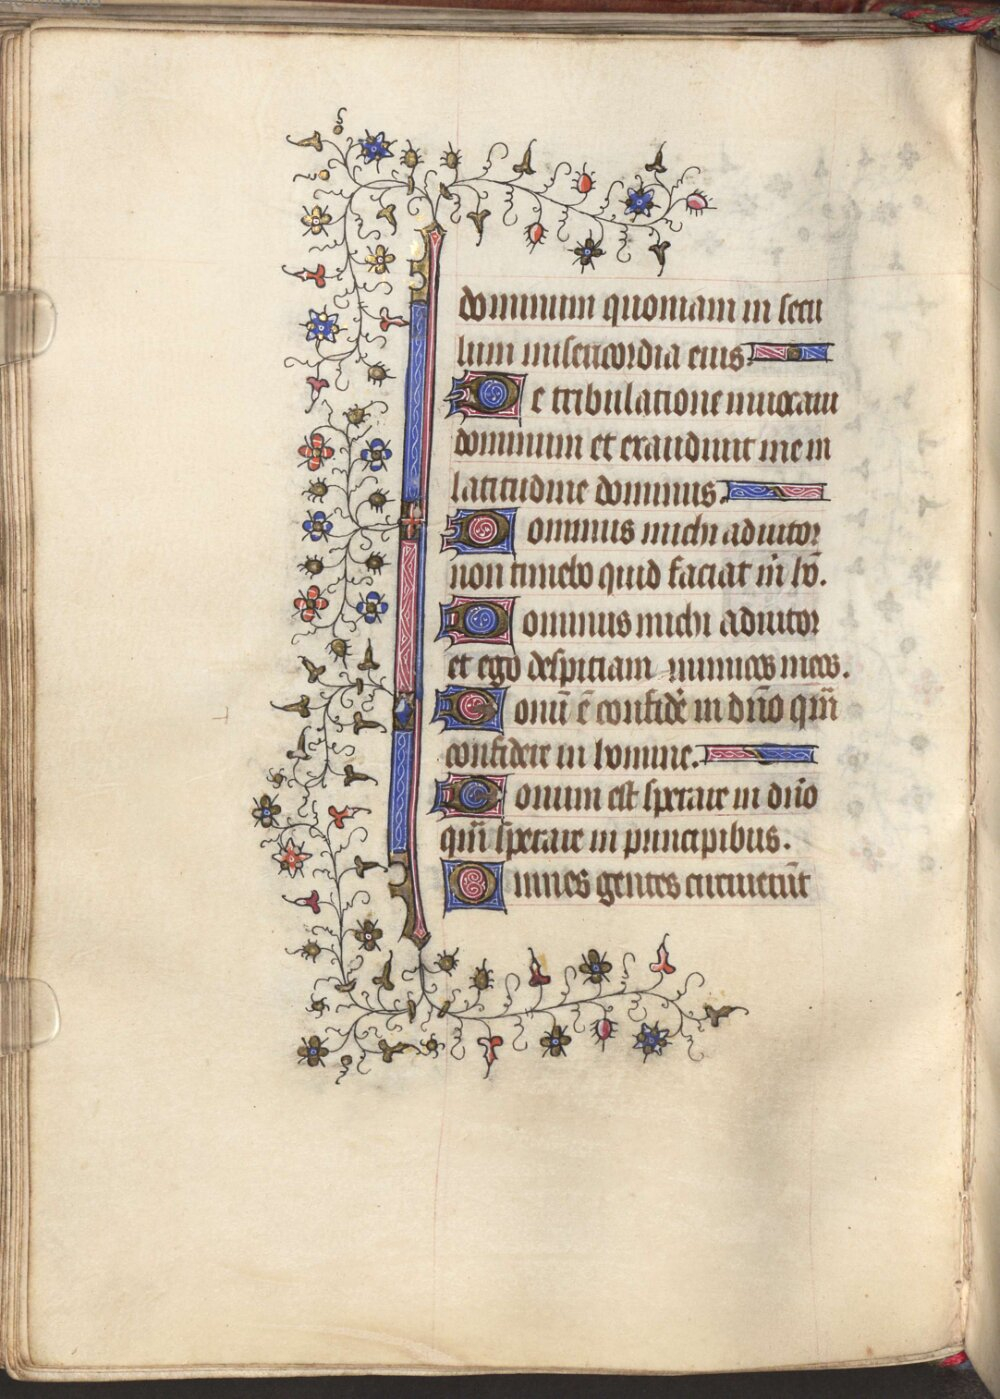 dominum quoniam in secu
lum misericordia eius.
De tribulatione inuocaui
dominum et exaudiuit me in
latitudine dominus.
Dominus michi adiutor
non timebo quid faciat m̄ hō.
Dominus michi adiutor
et ego despiciam inimicos meos.
Bonū ē confidē in dn̄o qm̄
confidere in homine.
Bonum est sperare in dn̄o
qm̄ sperare in principibus.
Omnes gentes circuierūt